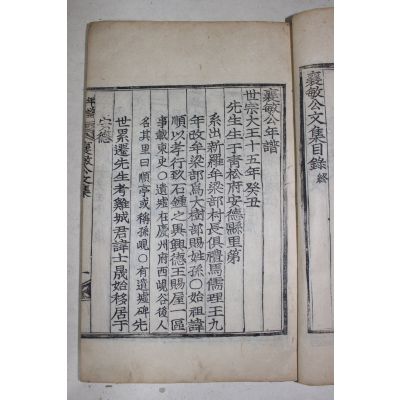 襄敏公文集目錄 終
襄敏公年譜
世宗大王十五年癸丑
先生生于靑松府安德縣里第
系出新羅牟梁部村長俱禮馬儒理王九
年改牟梁部爲大樹部賜姓孫○始祖諱
順以孝行致石鍾之異興德王賜屋一區
事載東史○遺墟在慶州府西峴谷後人
名其里曰順亭或稱孫峴○有遺墟碑先
世累遷先生考雞城君諱士晟始移居于
宗德
年譜
襄敏公文集
一